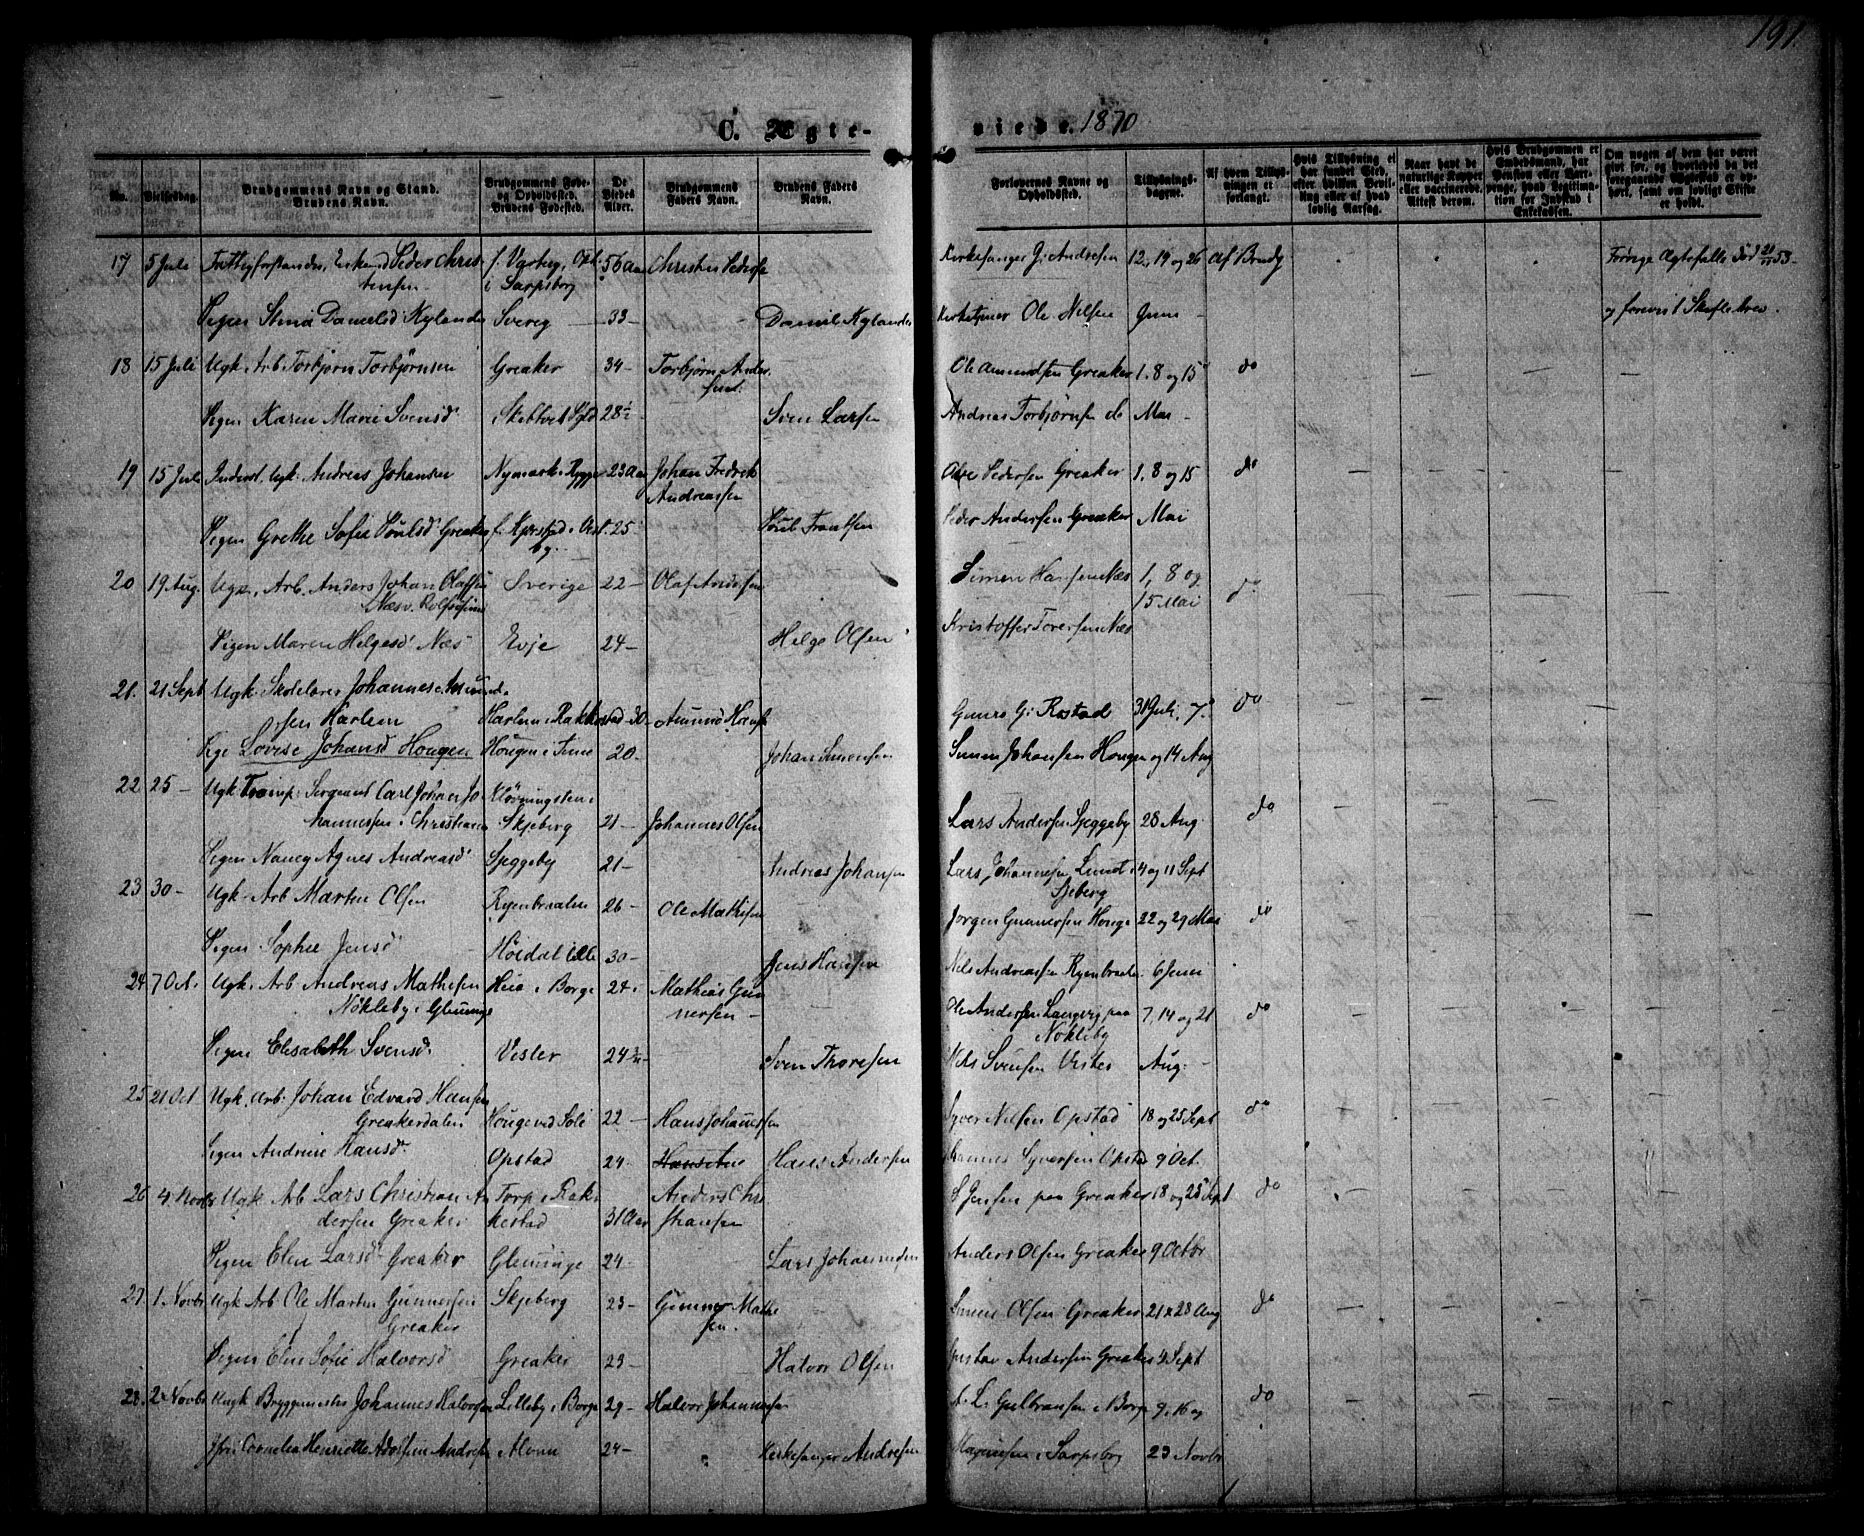 191.
C. Ægte-
viede. 1870
No.
Vielsesdag.
Brudgommens Navn og Stand.
Brudens Navn.
Brudgommens Føde-
og Opholdssted.
Brudens Fødested.
De
Viedes
Alder.
Brudgommens
Faders Navn.
Brudens Faders
Navn.
Forlovernes Navne og
Opholdssted.
Tillysnings-
dagene.
Af hvem Tillys-
ningen er
forlangt.
Hvis Tillysning ei
har fundet Sted,
efter hvilken Bevil-
ling eller af hvad
lovlig Aarsag.
Naar havt de
naturlige Kopper
eller vaccinerede.
Attest derom.
Hvis Brudgommen er
Embedsmand, har
Pension eller Vart-
penge, hvad Legitima-
tion for Indskud i
Enkekassen.
Om nogen af dem har været
gift før, og hvorledes da det
foregaaende Ægteskab er op-
hørt, samt om lovligt Skifte
er holdt.
17 5 Juli Fattigforstander, Enkemd Peder Chris- f. Varteig, Oph. 56 Aar Christen Peders Kirkesanger G. Andresen 12, 19 og 26 Af Brudg Forrige Ægtefælle død 53
tensen i Sarpsborg
Pigen Stina Danielsd Kylander Sverig 33 Daniel Kylander Kirketjener Ole Nilsen Juni og forevist Skiftebrev.
18 15 Juli Ugk. Arb. Torbjørn Torbjørnsen Greaker 34 Torbjørn Ander- Ole Amundsen Greaker 1. 8 og 15 do
sen.
Pigen Karen Marie Svensd Skebtvet 28½ Sven Larsen Andreas Torbjørnsen do Mai
19 15 Juli Inderst. Ugk. Andreas Johansen Nymark i Rygge 23 Aar Johan Fredrik Ole Pedersen Greaker 1, 8 og 15 do
Andreassen
Pigen Grethe Sofie Poulsd Greaker 25 Poul Frantsen Peder Andersen Greaker Mai
20 19 Aug. Ugk. Arb. Anders Johan Olafsen Sverige 22 Olaf Andersen Simen Hansen Næs 1, 8 og do
15 Mai
Pigen Maren Helgesd Næs Evje 24 Helge Olsen Kristoffer Toresen Næs
21. 21 Sept Ugk. Skolelærer Johannes Amund-
sen Harlem Harlem i Rakkestad 30 Amund Hansen Rostad 31 Juli, 7 do
Pige Lovise Johansd Hougen Hougen i Tune 20 Johan Simensen Simen Johansen Hougen og 14 Aug
22 25 Ugk. Tromp. Sergeand Carl Johan Jo- Kløvningsten i
hannessen i Christiania Skjeberg 21 Johannes Olsen Lars Andersen Speggeby 28 Aug. do
Pigen Nancy Agnes Andreasd Speggeby 21 Andreas Johansen Lars Johannesen Lund i 4 og 11 Sept
Skjeberg
23 30 Ugk. Arb Marten Olsen Ryenbraaten 26 Ole Mathisen Jørgen Gunnersen Houge 22 og 29 Mai do
Pigen Sophie Jensd Høidal 30 Jens Hansen Nils Andreassen Ryenbraaten 6 Juni
24 7 Oct. Ugk. Arb Andreas Mathisen Heie i Borge 24 Mathias Gun- Ole Andersen Langvig paa 7, 14 og 21 do
Nøkleby i Glemminge nersen Nøkleby
Pigen Elisabeth Svensd. Vister 24 Sven Thoresen Nils Svensen Vister Aug.
25 21 Oct Ugk. Arb. Johan Edvard Hansen
Greakerdalen Houge ved Soli 22 Hans Johannessen Syver Nilsen Opstad 18 og 25 Sept do
Pigen Andrine Hansd. Opstad 24 Hans Andersen Hannes Syversen Opstad 9 Oct.
26 4 Novbr Ugk. Arb Lars Christian An- Torp i Rak- Anders Chri- Jensen paa Greaker 18 og 25 Sept do
dersen Greaker kestad 31 Aar stiansen
Pigen Elen Larsd Greaker Glemminge 24 Lars Johannesen Anders Olsen Greaker 9 Octbr
27. 1 Novbr Ugk Arb Ole Martin Gunnersen Skjeberg 23 Gunner Mathi- Simen Olsen Greaker 21 & 28 Aug do
Greaker sen.
Pigen Elen Sofie Halvorsd Greaker 23 Halvor Olsen Gustav Andersen Greaker 4 Sept
28. 2 Novbr Ungk Bryggemester Johannes Halvorsen Lilleby i Borge 29 Halvor Johannesen A. L. Gulbransen i Borge 9, 16 og do
Jfr. Cornelia Henriette Andresen Alvim 24 Kirkesanger Andresen Magnussen i Sarpsborg 23 Novbr